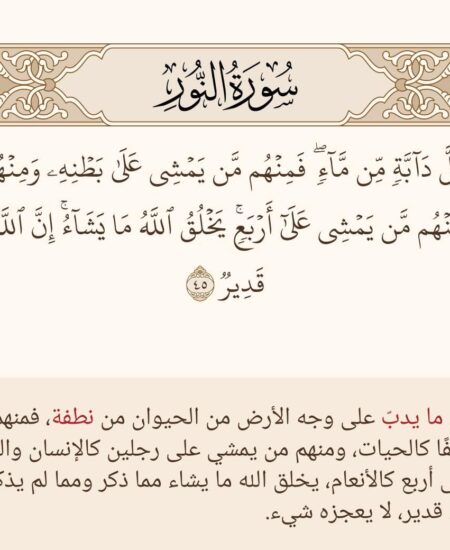 سُورَةُ النُّورِ
دَآبَّةٖ مِّن مَّآءٖۖ فَمِنۡهُم مَّن يَمۡشِي عَلَىٰ بَطۡنِهِۦ
مَّن يَمۡشِي عَلَىٰٓ أَرۡبَعٖۚ يَخۡلُقُ ٱللَّهُ مَا يَشَآءُۚ إِنَّ
قَدِيرٞ ٤٥
ما يدبّ على وجه الأرض من الحيوان من نطفة،
كالحيات، ومنهم من يمشي على رجلين كالإنسان
أربع كالأنعام، يخلق الله ما يشاء مما ذكر ومما لم
قدير، لا يعجزه شيء.